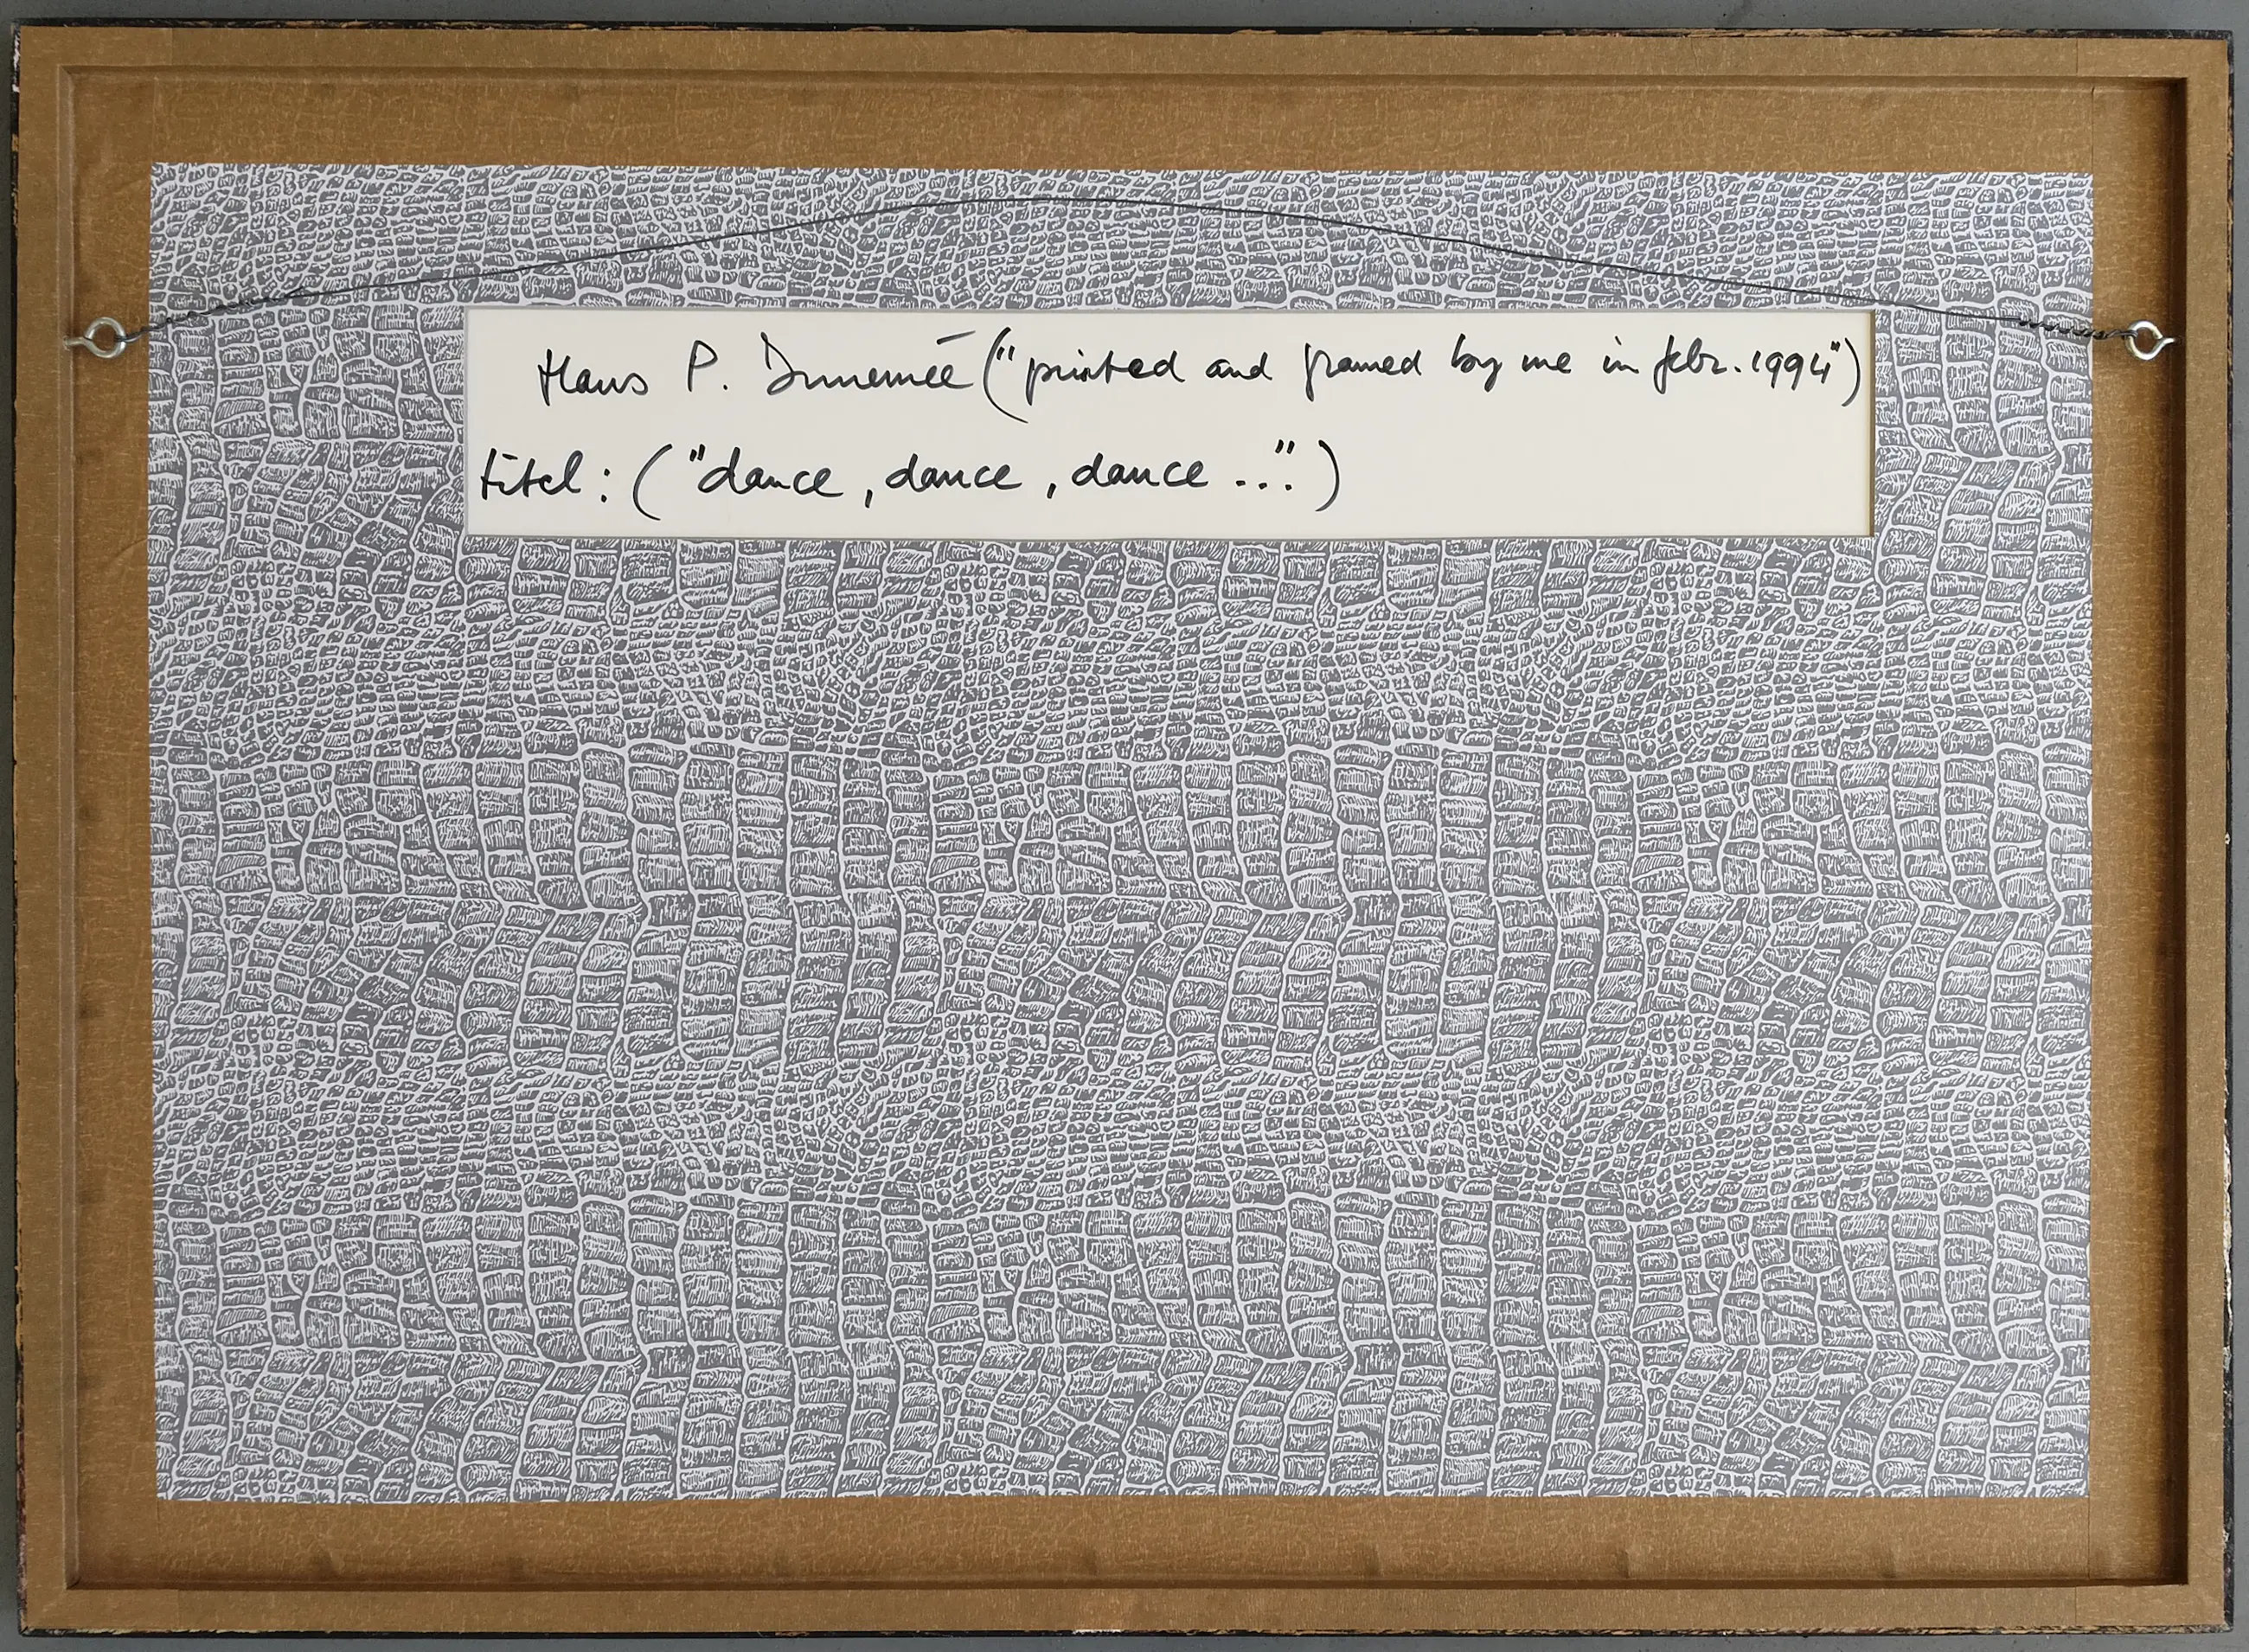 Hans P. ("printed and framed by me in febr. 1994")
titel: ("dance, dance, dance ...")